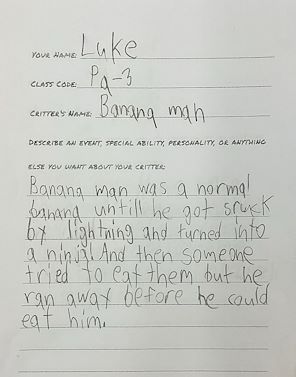 YOUR NAME: Luke
CLASS CODE: Pa-3
CRITTER'S NAME: Banana man
DESCRIBE AN EVENT, SPECIAL ABILITY, PERSONALITY, OR ANYTHING
ELSE YOU WANT ABOUT YOUR CRITTER:
Banana man was a normal
banana untill he got sruck
by lightning and turned into
a ninja! And then someone
tried to eat them but he
ran away before he could
eat him.